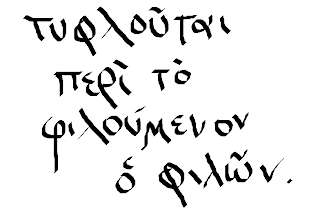 τυφλοῦται
περὶ τὸ
φιλούμενον
ὁ φιλῶν.